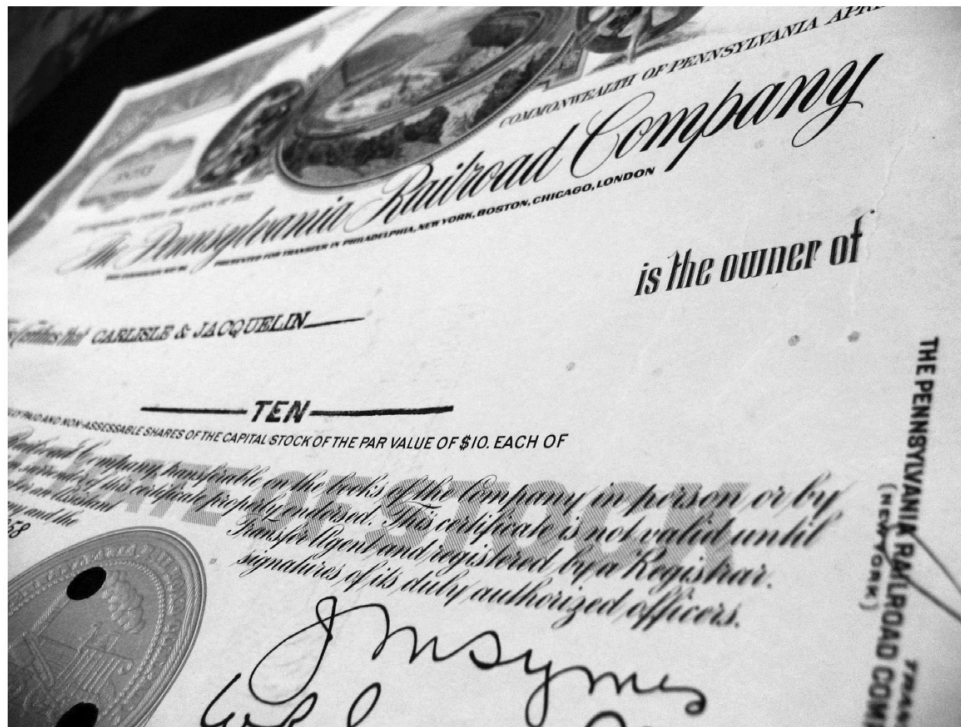 COMMONWEALTH OF PENNSYLVANIA APRI
The Pennsylvania Railroad Company
PRESENTED FOR TRANSFER IN PHILADELPHIA, NEW YORK, BOSTON, CHICAGO, LONDON
is the owner of
Certifies that CARLISLE & JACQUELIN
TEN
PAID AND NON-ASSESSABLE SHARES OF THE CAPITAL STOCK OF THE PAR VALUE OF $10. EACH OF
Railroad Company, transferable on the books of the Company in person or by
surrender of this certificate properly endorsed. This certificate is not valid until
Transfer Agent and registered by a Registrar.
and the
signatures of its duly authorized officers.
58
ATE OF STOCK
J M Symes
THE PENNSYLVANIA RAILROAD COM
(NEW YORK)
TRANS